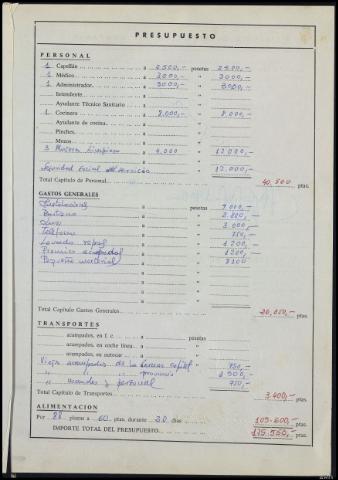 PRESUPUESTO
PERSONAL
1 Capellán a 2.500,- pesetas 2.500,-
1 Médico a 3.000,- " 3.000,-
1 Administrador a 3.000,- " 3.000,-
Intendente a "
Ayudante Técnico Sanitario a "
1 Cocinera a 8.000,- " 8.000,-
Ayudante de cocina a "
Pinches a "
Mozos a "
3 a 4.000 " 12.000,-
Seguridad Social del servicio 12.000,-
Total Capítulo de Personal 40.500 ptas.
GASTOS GENERALES
a pesetas 7.000,-
Butano a "
Luz a " 3.000,-
Teléfono a " 750,-
Lavado ropas a " 1.200,-
Premios acampados a " 1.200,-
Pequeño material a "
Total Capítulo Gastos Generales ptas.
TRANSPORTES
acampados, en f. c. a "
acampados, en coche línea a "
acampados, en autocar a "
Viaje acampados de la capital " 750,-
" " " provincia
" mandos y personal 750,-
Total Capítulo de Transportes 3.400,- ptas.
ALIMENTACION
Por 88 plazas a 60 ptas. durante 20 días 105.600,- ptas.
IMPORTE TOTAL DEL PRESUPUESTO ptas.